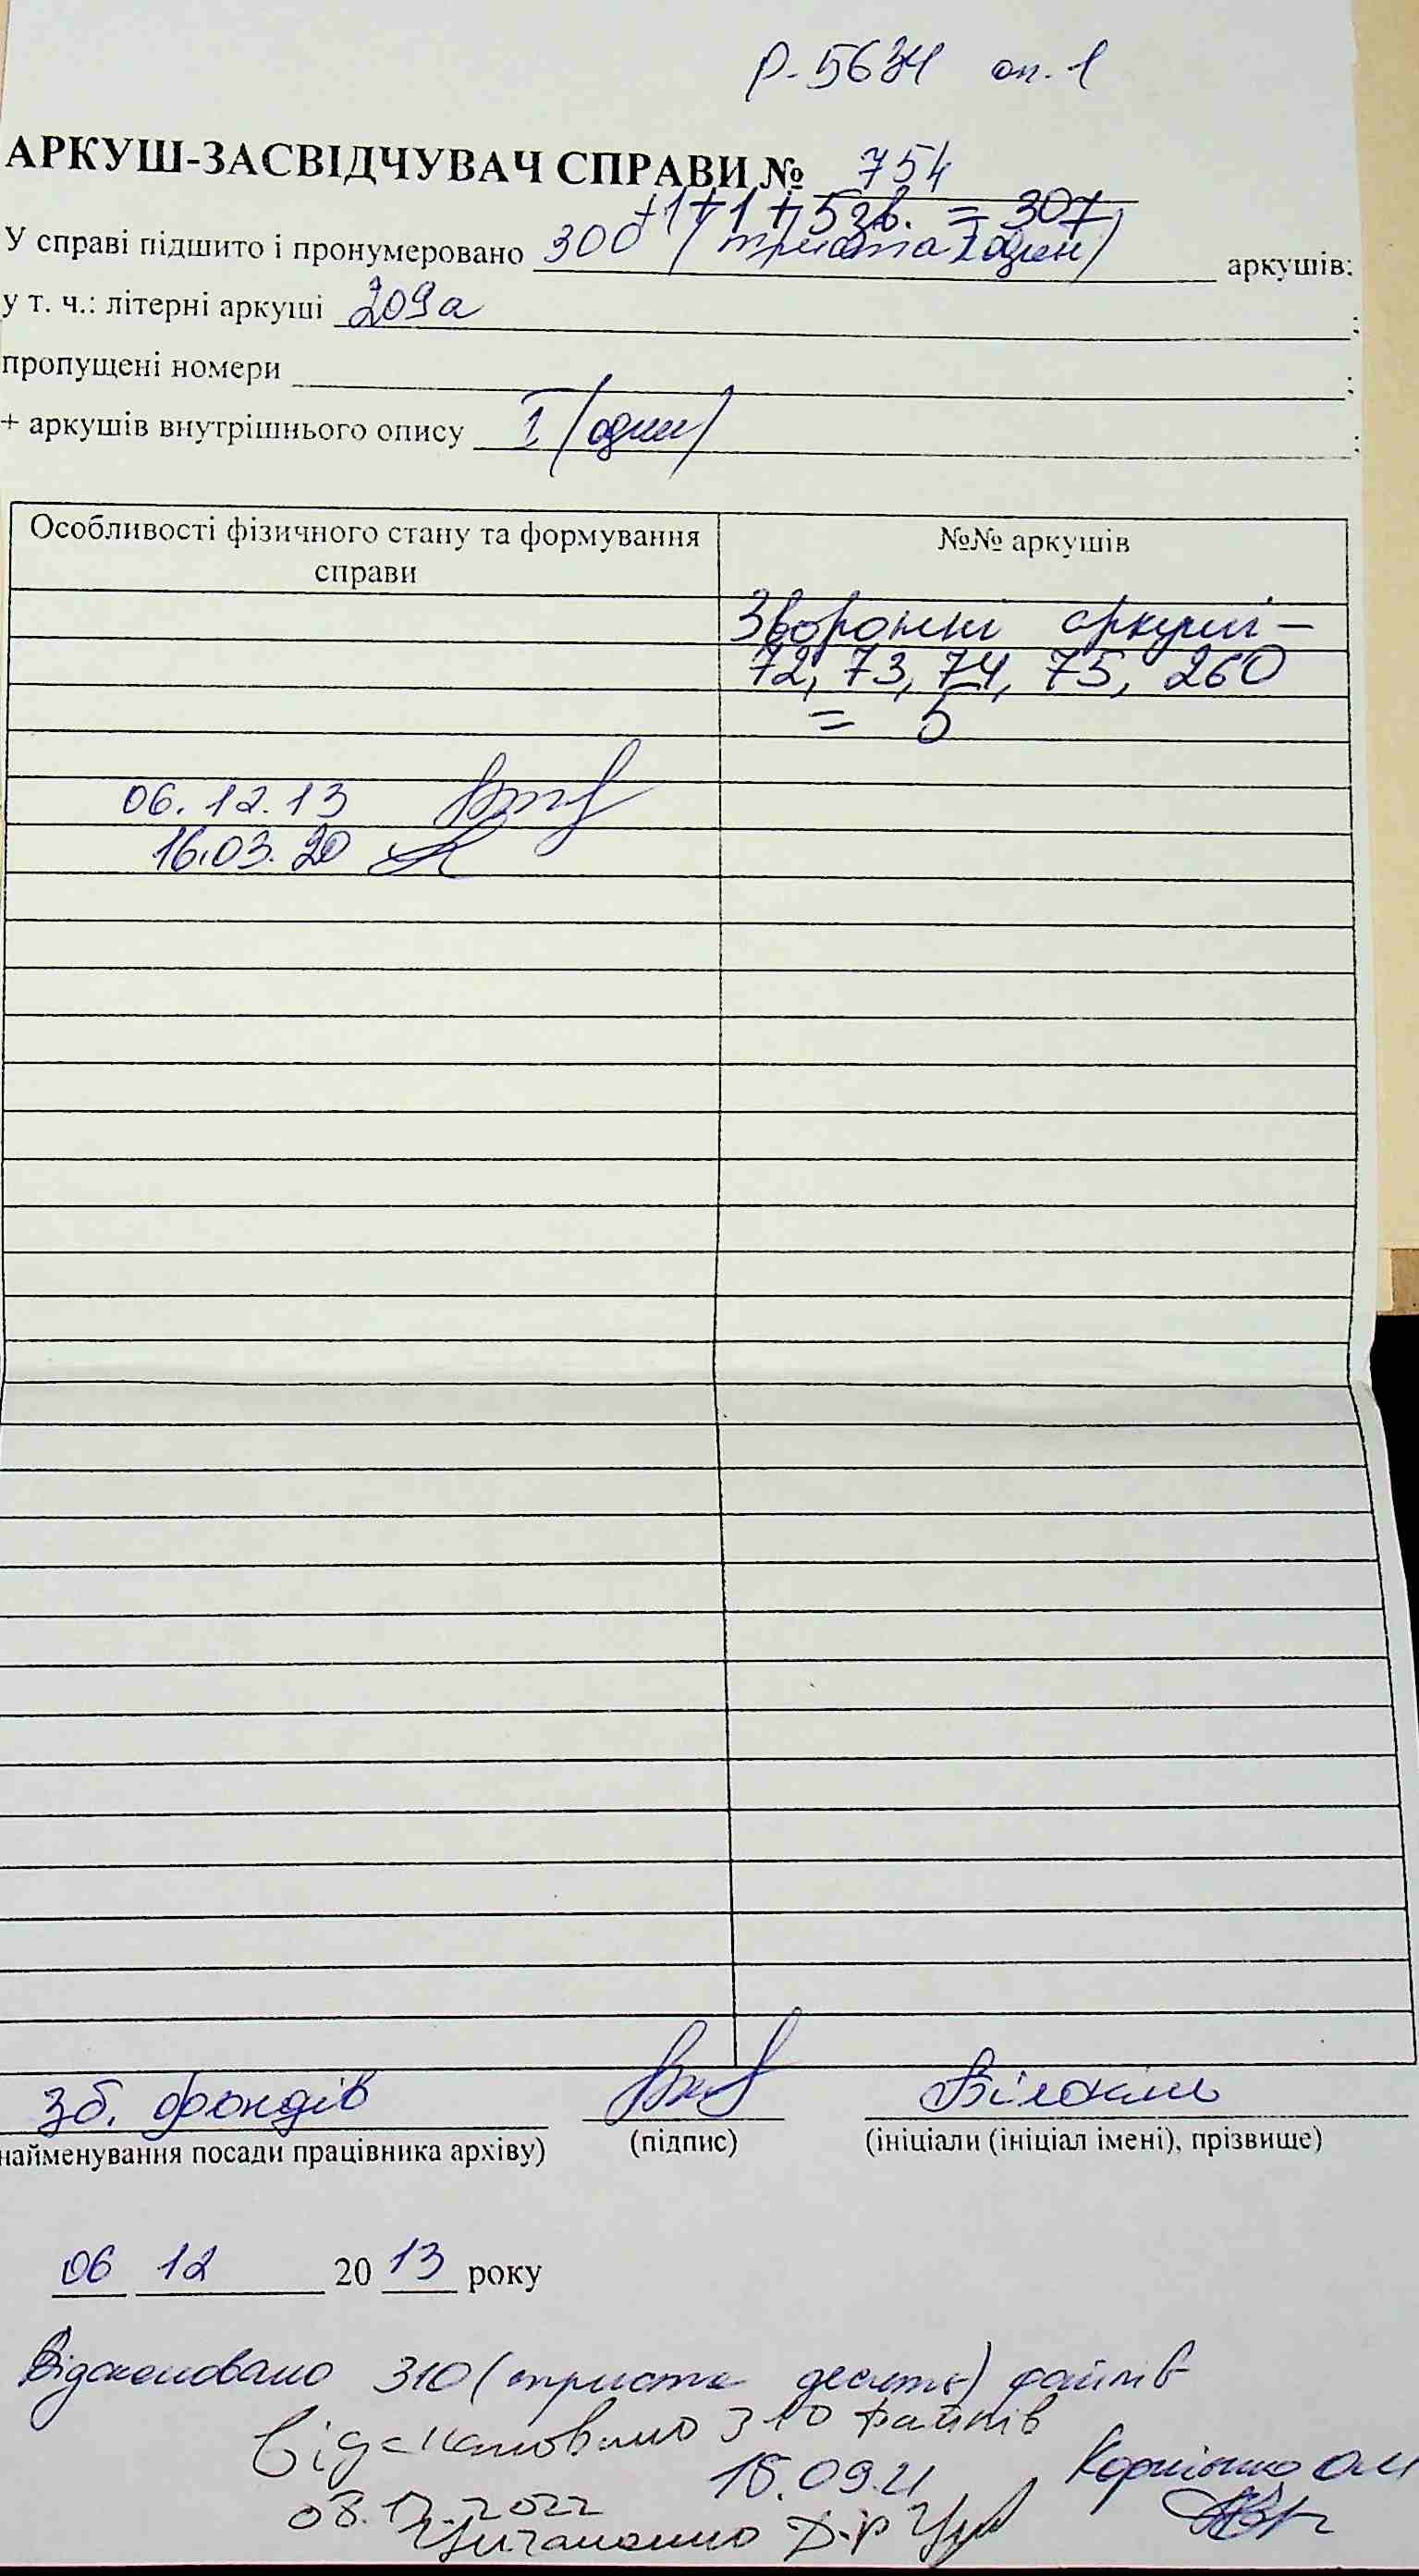 Р-5634 оп. 1
АРКУШ-ЗАСВІДЧУВАЧ СПРАВИ № 754
+1+1+5зв. = 307
У справі підшито і пронумеровано 300 (триста один) аркушів:
у т. ч.: літерні аркуші 209а ;
пропущені номери ;
+ аркушів внутрішнього опису 1 (один) ;
Особливості фізичного стану та формування справи
№№ аркушів
Зворотні аркуші –
72, 73, 74, 75, 260
= 5
06.12.13
16.03.20
зб. фондів
Білокінь
найменування посади працівника архіву)
(підпис)
(ініціали (ініціал імені), прізвище)
06 12 2013 року
Відскановано 310 (триста десять) файлів
Відскановано 310 файлів
18.09.21
Корнієнко О.М
08.12.2022